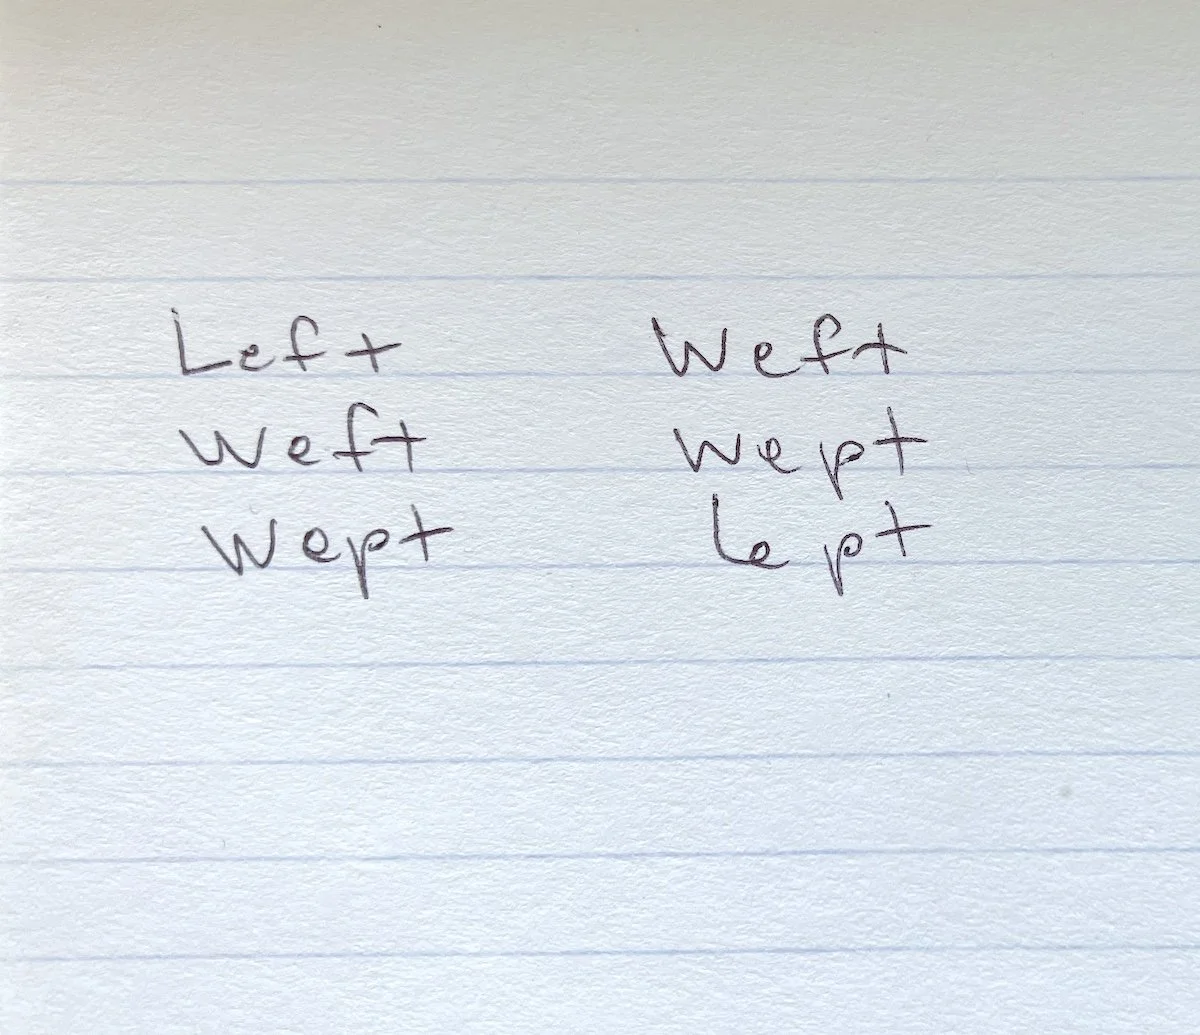 Left Weft
Weft Wept
Wept Lept